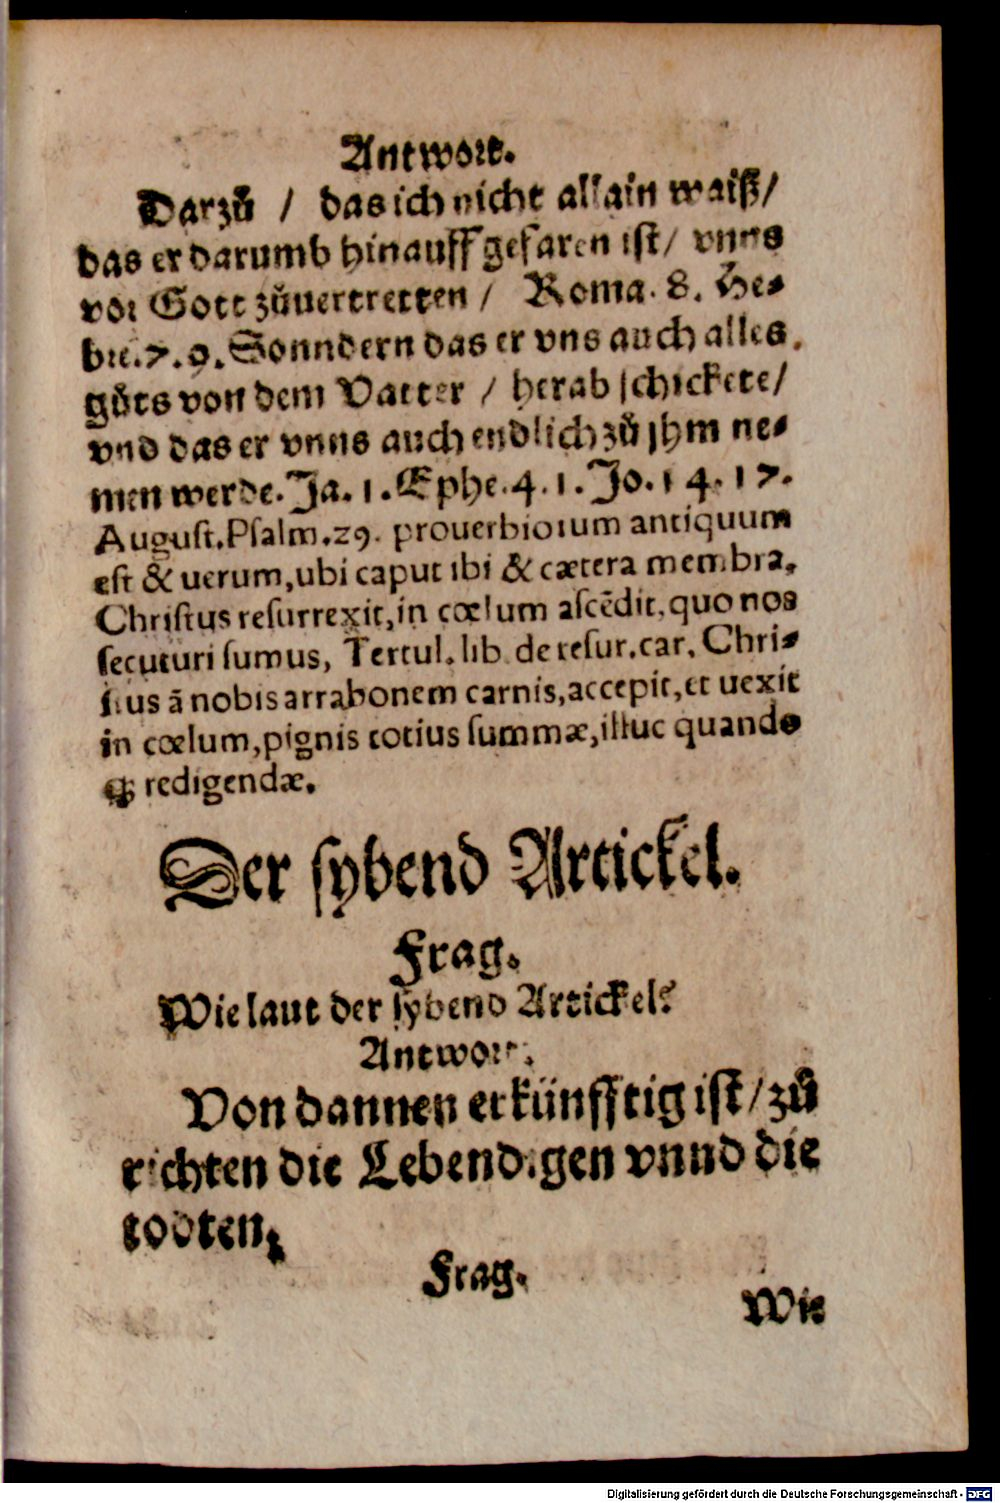 Antwort.
Darzů / das ich nicht allain waiß/
das er darumb hinauff gefaren ist/ vnns
vor Gott zůuertretten / Roma. 8. He-
bre. 7. 9. Sonndern das er vns auch alles
gůts von dem Vatter / herab schickete/
vnd das er vnns auch endlich zů jhm ne-
men werde. Ja. 1. Ephe. 4. 1. Jo. 14. 17.
August. Psalm. 29. prouerbiorum antiquum
est & uerum, ubi caput ibi & cætera membra.
Christus resurrexit, in cœlum ascēdit, quo nos
secuturi sumus, Tertul. lib. de resur. car. Chri-
stus ā nobis arrabonem carnis, accepit, et uexit
in cœlum, pignis totius summæ, illuc quando
ꝗ redigendæ.
Der sybend Artickel.
Frag.
Wie laut der sybend Artickel?
Antwort.
Von dannen er künfftig ist / zů
richten die Lebendigen vnnd die
todten.
Frag.
Wie
Digitalisierung gefördert durch die Deutsche Forschungsgemeinschaft - DFG